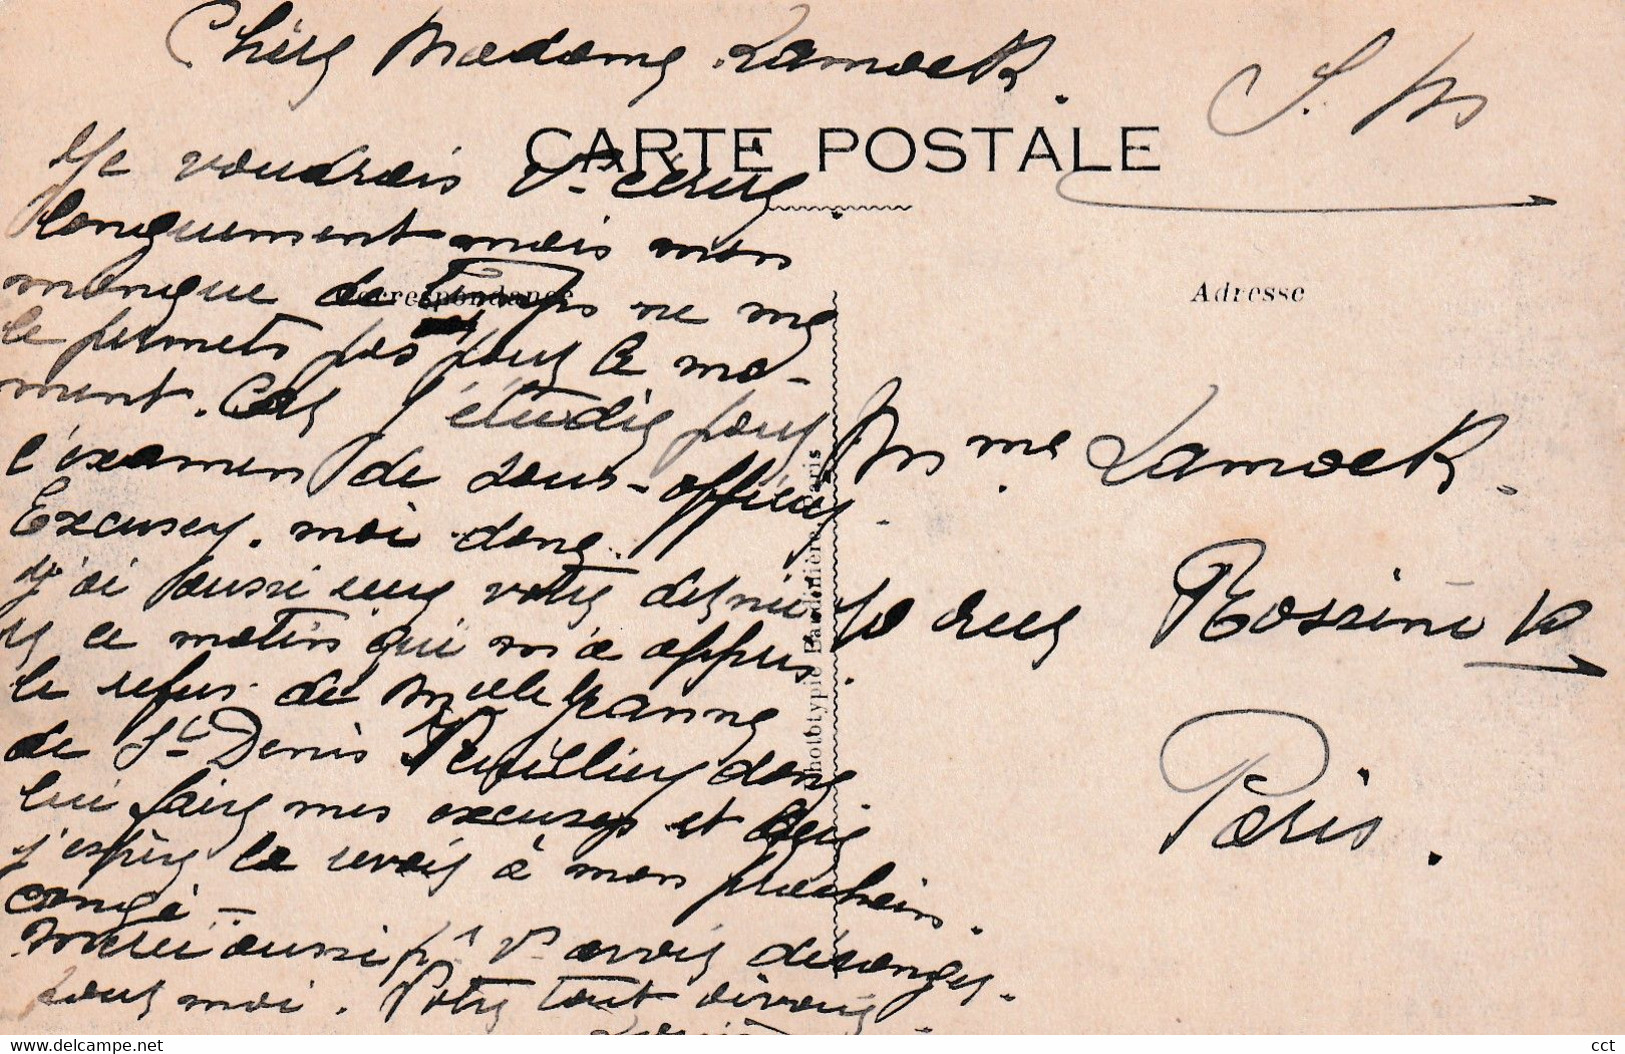 Chère Madame Lamock.
S. M
CARTE POSTALE
Je voudrais Vs écrire
longuement mais mon
Correspondance
Adresse
manque de temps ne me
le permets pas pour le mo-
ment. Car j'étudie pour
l'examen de sous-officier.
Excusez-moi donc.
J'ai aussi reçu votre dernie
re ce matin qui m'a appris
le refus de Melle Jeanne
de St Denis Veuillez donc
lui faire mes excuses et dire
j'espère la revoir à mon prochain
congé -
Merci aussi pr Vs avoir déranger
pour moi. Votre tout dévoué
Mme Lamock.
10 rue Rossini 10
Paris.
Phototypie Baudinière Paris
© cct